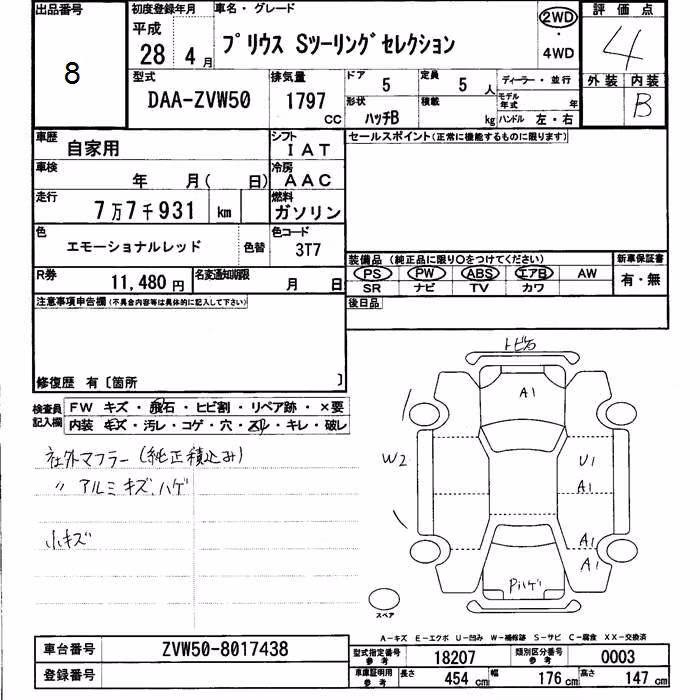 出品番号 8
初度登録年月 平成 28 4月
車名・グレード プリウス Sツーリングセレクション
2WD ・ 4WD
評価点 4
外装 内装 B
型式 DAA-ZVW50
排気量 1797 CC
ドア 5
定員 5 人
ディーラー・並行
形状 ハッチB
積載 kg
モデル年式 年
ハンドル 左・右
車歴 自家用
シフト IAT
セールスポイント(正常に機能するものに限ります)
車検 年 月( 日)
冷房 AAC
走行 7万7千931 km
燃料 ガソリン
色 エモーショナルレッド 色替
色コード 3T7
装備品 (純正品に限り○をつけてください)
新車保証書 有・無
PS PW ABS エアB AW
SR ナビ TV カワ
R券 11,480円
名変通知期限 月 日
後日品
注意事項申告欄(不具合内容等は具体的に記入して下さい)
修復歴 有〔箇所 〕
検査員記入欄
FW キズ・飛石・ヒビ割・リペア跡・×要
内装・キズ・汚レ・コゲ・穴・スレ・キレ・破レ
社外マフラー(純正積込み)
〃 アルミキズ、ハゲ
小キズ
トビ石
A1
W2
U1
A1
A1
A1
Pハゲ
スペア
A-キズ E-エクボ U-凹み W-補修跡 S-サビ C-腐食 XX-交換済
車台番号 ZVW50-8017438
登録番号
型式指定番号 参考 18207
類別区分番号 参考 0003
車庫証明用 参考 長さ 454 cm 幅 176 cm 高さ 147 cm